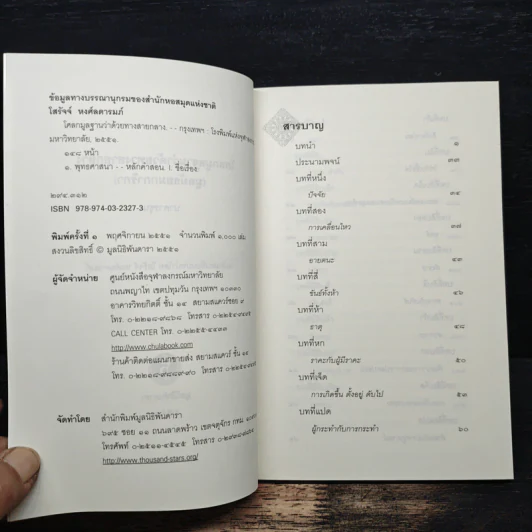 ข้อมูลทางบรรณานุกรมของสำนักหอสมุดแห่งชาติ
โสรัจจ์ หงศ์ลดารมภ์
โศลกมูลฐานว่าด้วยทางสายกลาง. - - กรุงเทพฯ : โรงพิมพ์แห่งจุฬา
มหาวิทยาลัย, ๒๕๕๑.
๑๔๘ หน้า
๑. พุทธศาสนา - - หลักคำสอน I. ชื่อเรื่อง
๒๙๔.๓๑๒
ISBN 978-974-03-2327-3
พิมพ์ครั้งที่ ๑ พฤศจิกายน ๒๕๕๑ จำนวนพิมพ์ ๑,๐๐๐ เล่ม
สงวนลิขสิทธิ์ © มูลนิธิพันดารา ๒๕๕๑
ผู้จัดจำหน่าย ศูนย์หนังสือจุฬาลงกรณ์มหาวิทยาลัย
ถนนพญาไท เขตปทุมวัน กรุงเทพฯ ๑๐๓๓๐
อาคารวิทยกิตติ์ ชั้น ๑๔ สยามสแควร์ซอย ๙
โทร. ๐-๒๒๑๘-๙๘๖๘ โทรสาร
CALL CENTER โทร. ๐-๒๒๕๕-๔๔๓๓
http://www.chulabook.com
ร้านค้าติดต่อแผนกขายส่ง สยามสแควร์ ชั้น ๑๔
โทร. ๐-๒๒๑๘-๙๘๘๙-๙๐ โทรสาร
จัดทำโดย สำนักพิมพ์มูลนิธิพันดารา
๖๙๕ ซอย ๑๑ ถนนลาดพร้าว เขตจตุจักร กทม.
โทรศัพท์ ๐-๒๕๑๑-๔๕๔๕ โทรสาร
http://www.thousand-stars.org/
สารบาญ
บทนำ ๑
ประณามพจน์ ๓๓
บทที่หนึ่ง
ปัจจัย ๓๔
บทที่สอง
การเคลื่อนไหว ๓๗
บทที่สาม
อายตนะ ๔๓
บทที่สี่
ขันธ์ทั้งห้า ๔๖
บทที่ห้า
ธาตุ ๔๘
บทที่หก
ราคะกับผู้มีราคะ ๕๐
บทที่เจ็ด
การเกิดขึ้น ตั้งอยู่ ดับไป ๕๓
บทที่แปด
ผู้กระทำกับการกระทำ ๖๐